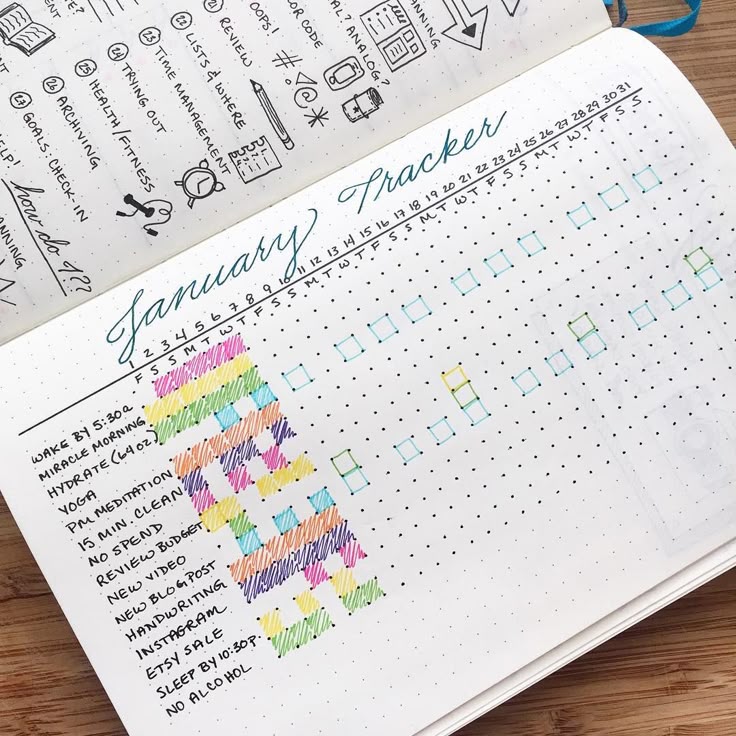 NING
ENT
HELP!
ANNING
how do I??
19 GOALS: CHECK-IN
26 ARCHIVING
25 HEALTH/FITNESS
24 TRYING OUT
23 TIME MANAGEMENT
22 LISTS & WHERE
21 REVIEW
OOPS!
OR CODE
ANALOG?
NNING
#
*
January Tracker
1 2 3 4 5 6 7 8 9 10 11 12 13 14 15 16 17 18 19 20 21 22 23 24 25 26 27 28 29 30 31
F S S M T W T F S S M T W T F S S M T W T F S S M T W T F S S
WAKE BY 5:30a
MIRACLE MORNING
HYDRATE (64 OZ)
YOGA
PM MEDITATION
15 MIN. CLEAN
NO SPEND
REVIEW BUDGET
NEW VIDEO
NEW BLOG POST
HANDWRITING
INSTAGRAM
ETSY SALE
SLEEP BY 10:30p.
NO ALCOHOL